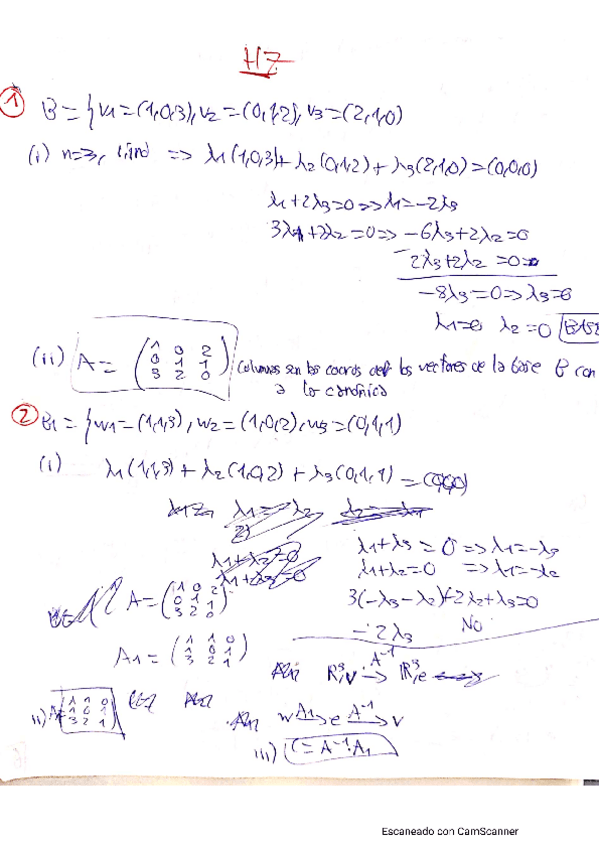 H7
① B = { v1 = (1,0,3), v2 = (0,1,2), v3 = (2,1,0)
(i) n=3, l.ind => λ1(1,0,3) + λ2(0,1,2) + λ3(2,1,0) = (0,0,0)
λ1 + 2λ3 = 0 => λ1 = -2λ3
3λ1 + 2λ2 = 0 => -6λ3 + 2λ2 = 0
2λ3 + 2λ2 = 0
-8λ3 = 0 => λ3 = 0
λ1 = 0 λ2 = 0 BASE
(ii) A = (1 0 2
0 1 1
3 2 0) Columnas son las coords de los vectores de la base B con
a la canónica
② B1 = { w1 = (1,1,3), w2 = (1,0,2), w3 = (0,1,1)
(i) λ1(1,1,3) + λ2(1,0,2) + λ3(0,1,1) = (0,0,0)
λ1 + λ3 = 0 => λ1 = -λ3
λ1 + λ2 = 0 => λ1 = -λ2
λ1 + λ2 = 0
λ1 + λ3 = 0
3(-λ3 - λ2) + 2λ2 + λ3 = 0
-2λ3 No
A = (1 0 2
0 1 1
3 2 0)
A1 = (1 1 0
1 0 1
3 2 1)
R³,v A⁻¹ R³,e
ii) A = (1 1 0
1 0 1
3 2 1)
w A1 → e A⁻¹ → v
iii) C = A⁻¹·A1
Escaneado con CamScanner